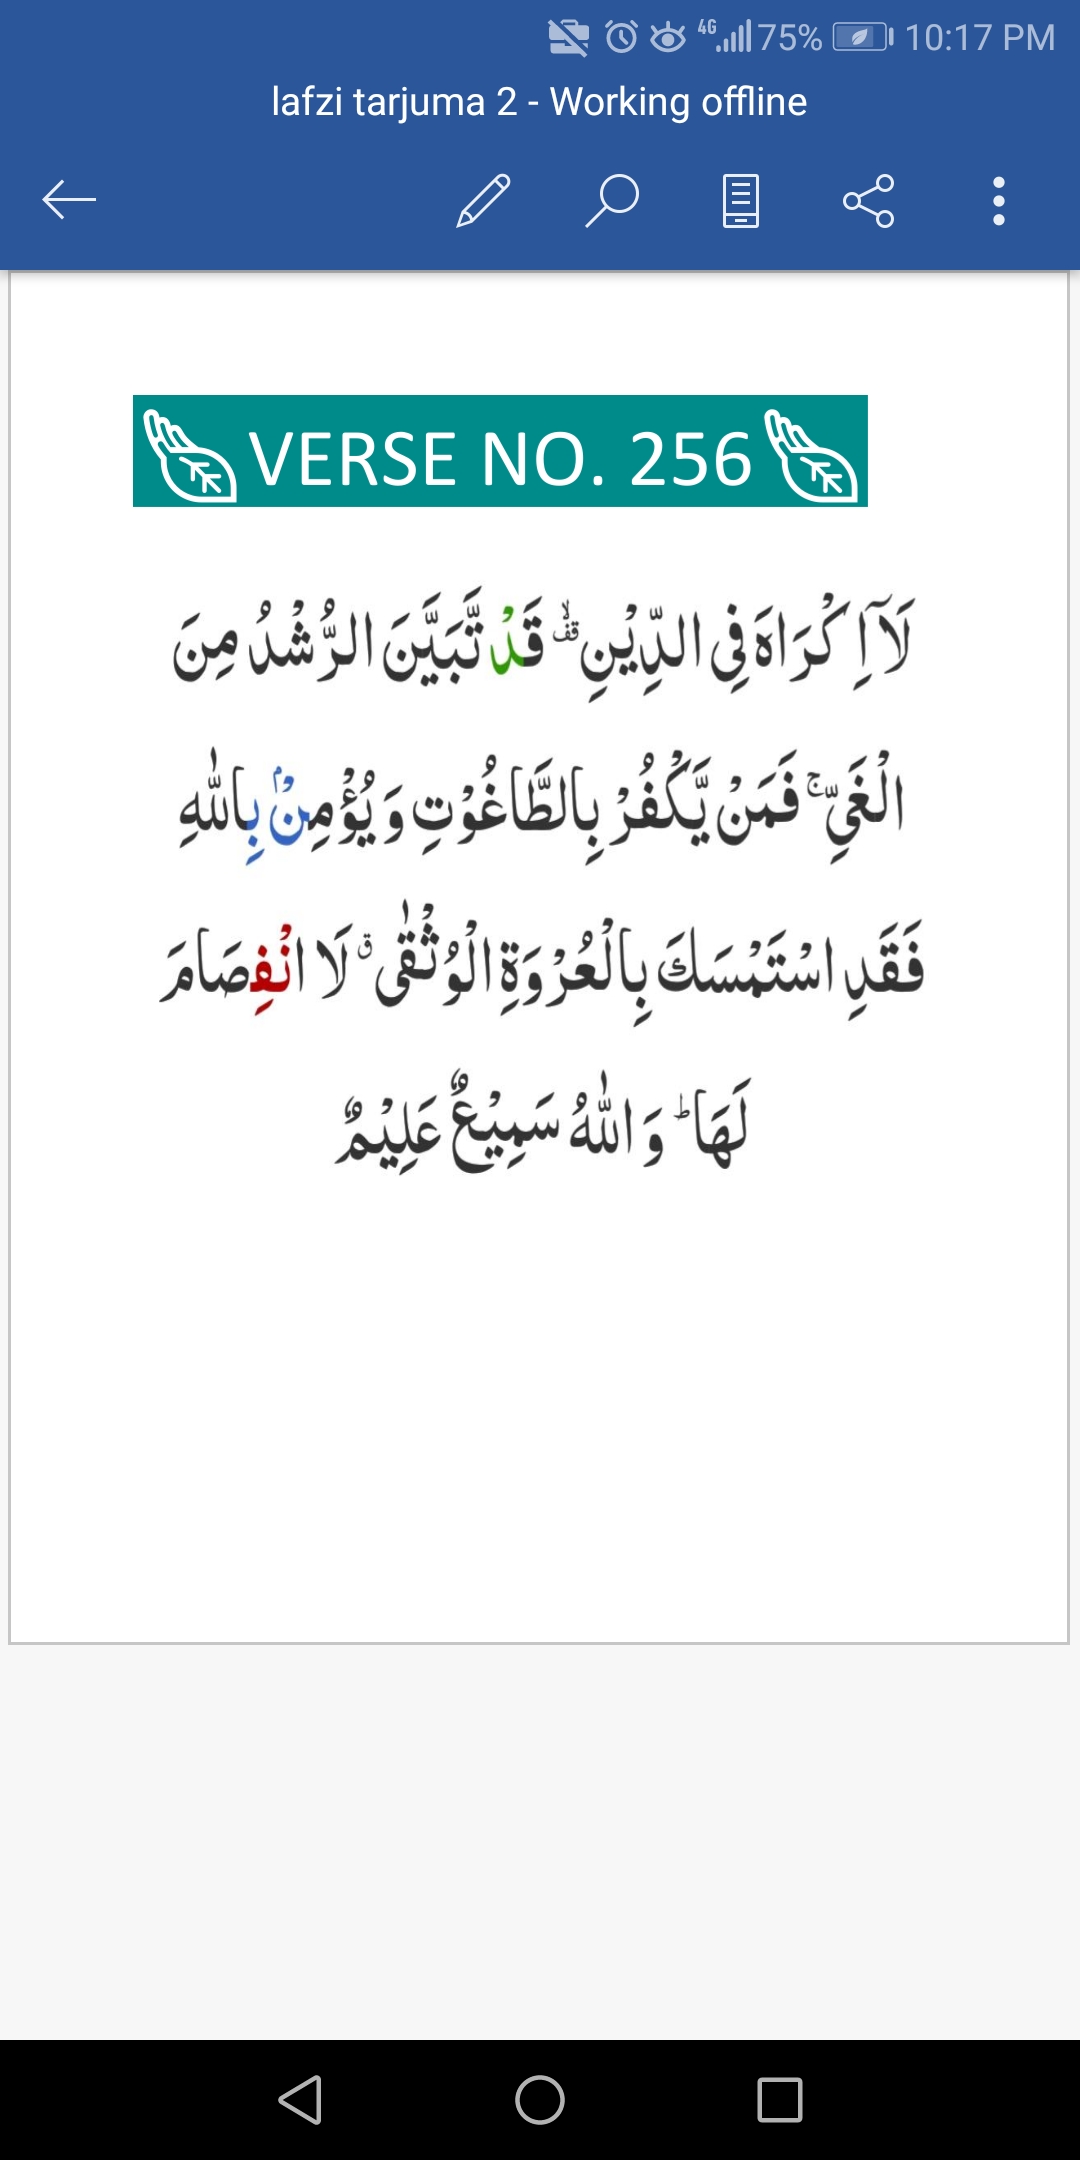 4G 75% 10:17 PM
lafzi tarjuma 2 - Working offline
VERSE NO. 256
لَآ اِكْرَاهَ فِی الدِّیْنِ ۙ۫ قَدْ تَّبَیَّنَ الرُّشْدُ مِنَ
الْغَیِّ ۚ فَمَنْ یَّكْفُرْ بِالطَّاغُوْتِ وَ یُؤْمِنْۢ بِاللّٰهِ
فَقَدِ اسْتَمْسَكَ بِالْعُرْوَةِ الْوُثْقٰی ۗ لَا انْفِصَامَ
لَهَا ؕ وَ اللّٰهُ سَمِیْعٌ عَلِیْمٌ